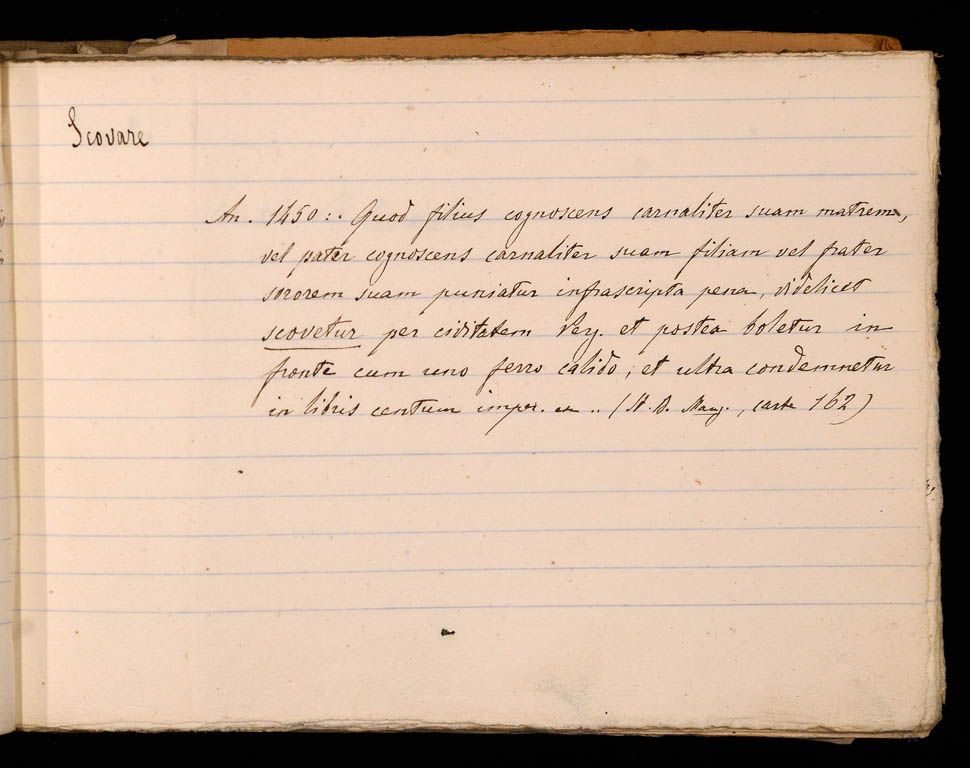 Scovare
An. 1450:. Quod filius cognoscens carnaliter suam matrem,
vel pater cognoscens carnaliter suam filiam vel frater
sororem suam puniatur infrascripta pena, videlicet
scovetur per civitatem Reg. et postea boletur in
fronte cum uno ferro calido; et ultra condemnetur
in libris centum imper. .. (St. D. Mang., carte 162)